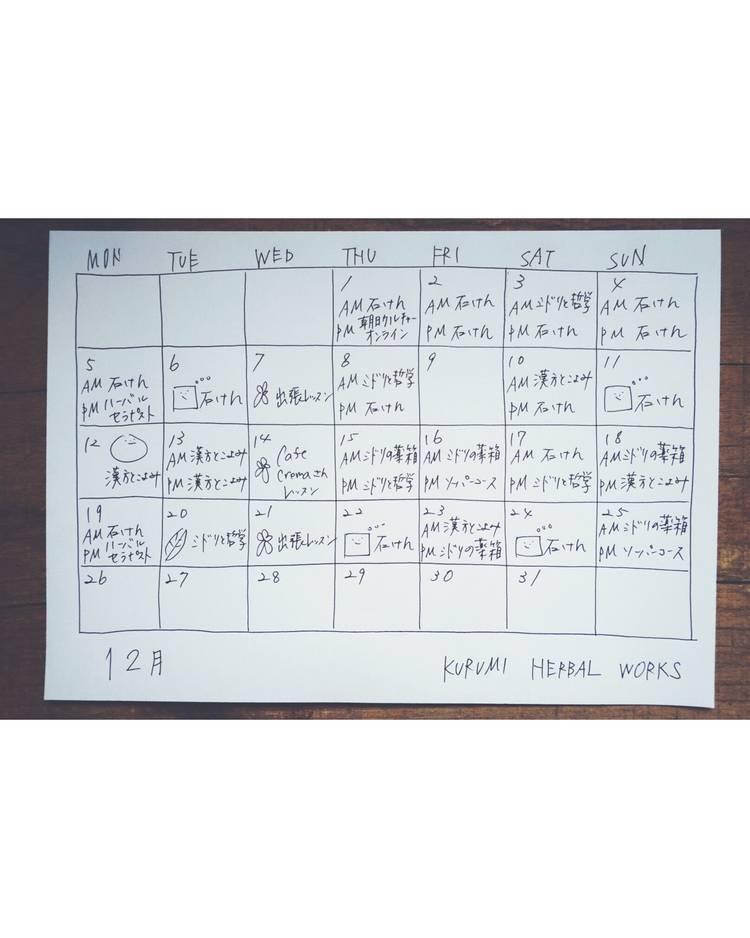 MON TUE WED THU FRI SAT SUN
1
AM 石けん
PM 朝日カルチャー
オンライン
2
AM 石けん
PM 石けん
3
AM ミドリと哲学
PM 石けん
4
AM 石けん
PM 石けん
5
AM 石けん
PM ハーバル
セラピスト
6
石けん
7
出張レッスン
8
AM ミドリと哲学
PM 石けん
9
10
AM 漢方とこよみ
PM 石けん
11
石けん
12
漢方とこよみ
13
AM 漢方とこよみ
PM 漢方とこよみ
14
Cafe
Cromaさん
レッスン
15
AM ミドリの薬箱
PM ミドリと哲学
16
AM ミドリの薬箱
PM ソーパーコース
17
AM 石けん
PM ミドリと哲学
18
AM ミドリの薬箱
PM 漢方とこよみ
19
AM 石けん
PM ハーバル
セラピスト
20
ミドリと哲学
21
出張レッスン
22
石けん
23
AM 漢方とこよみ
PM ミドリの薬箱
24
石けん
25
AM ミドリの薬箱
PM ソーパーコース
26 27 28 29 30 31
12月
KURUMI HERBAL WORKS